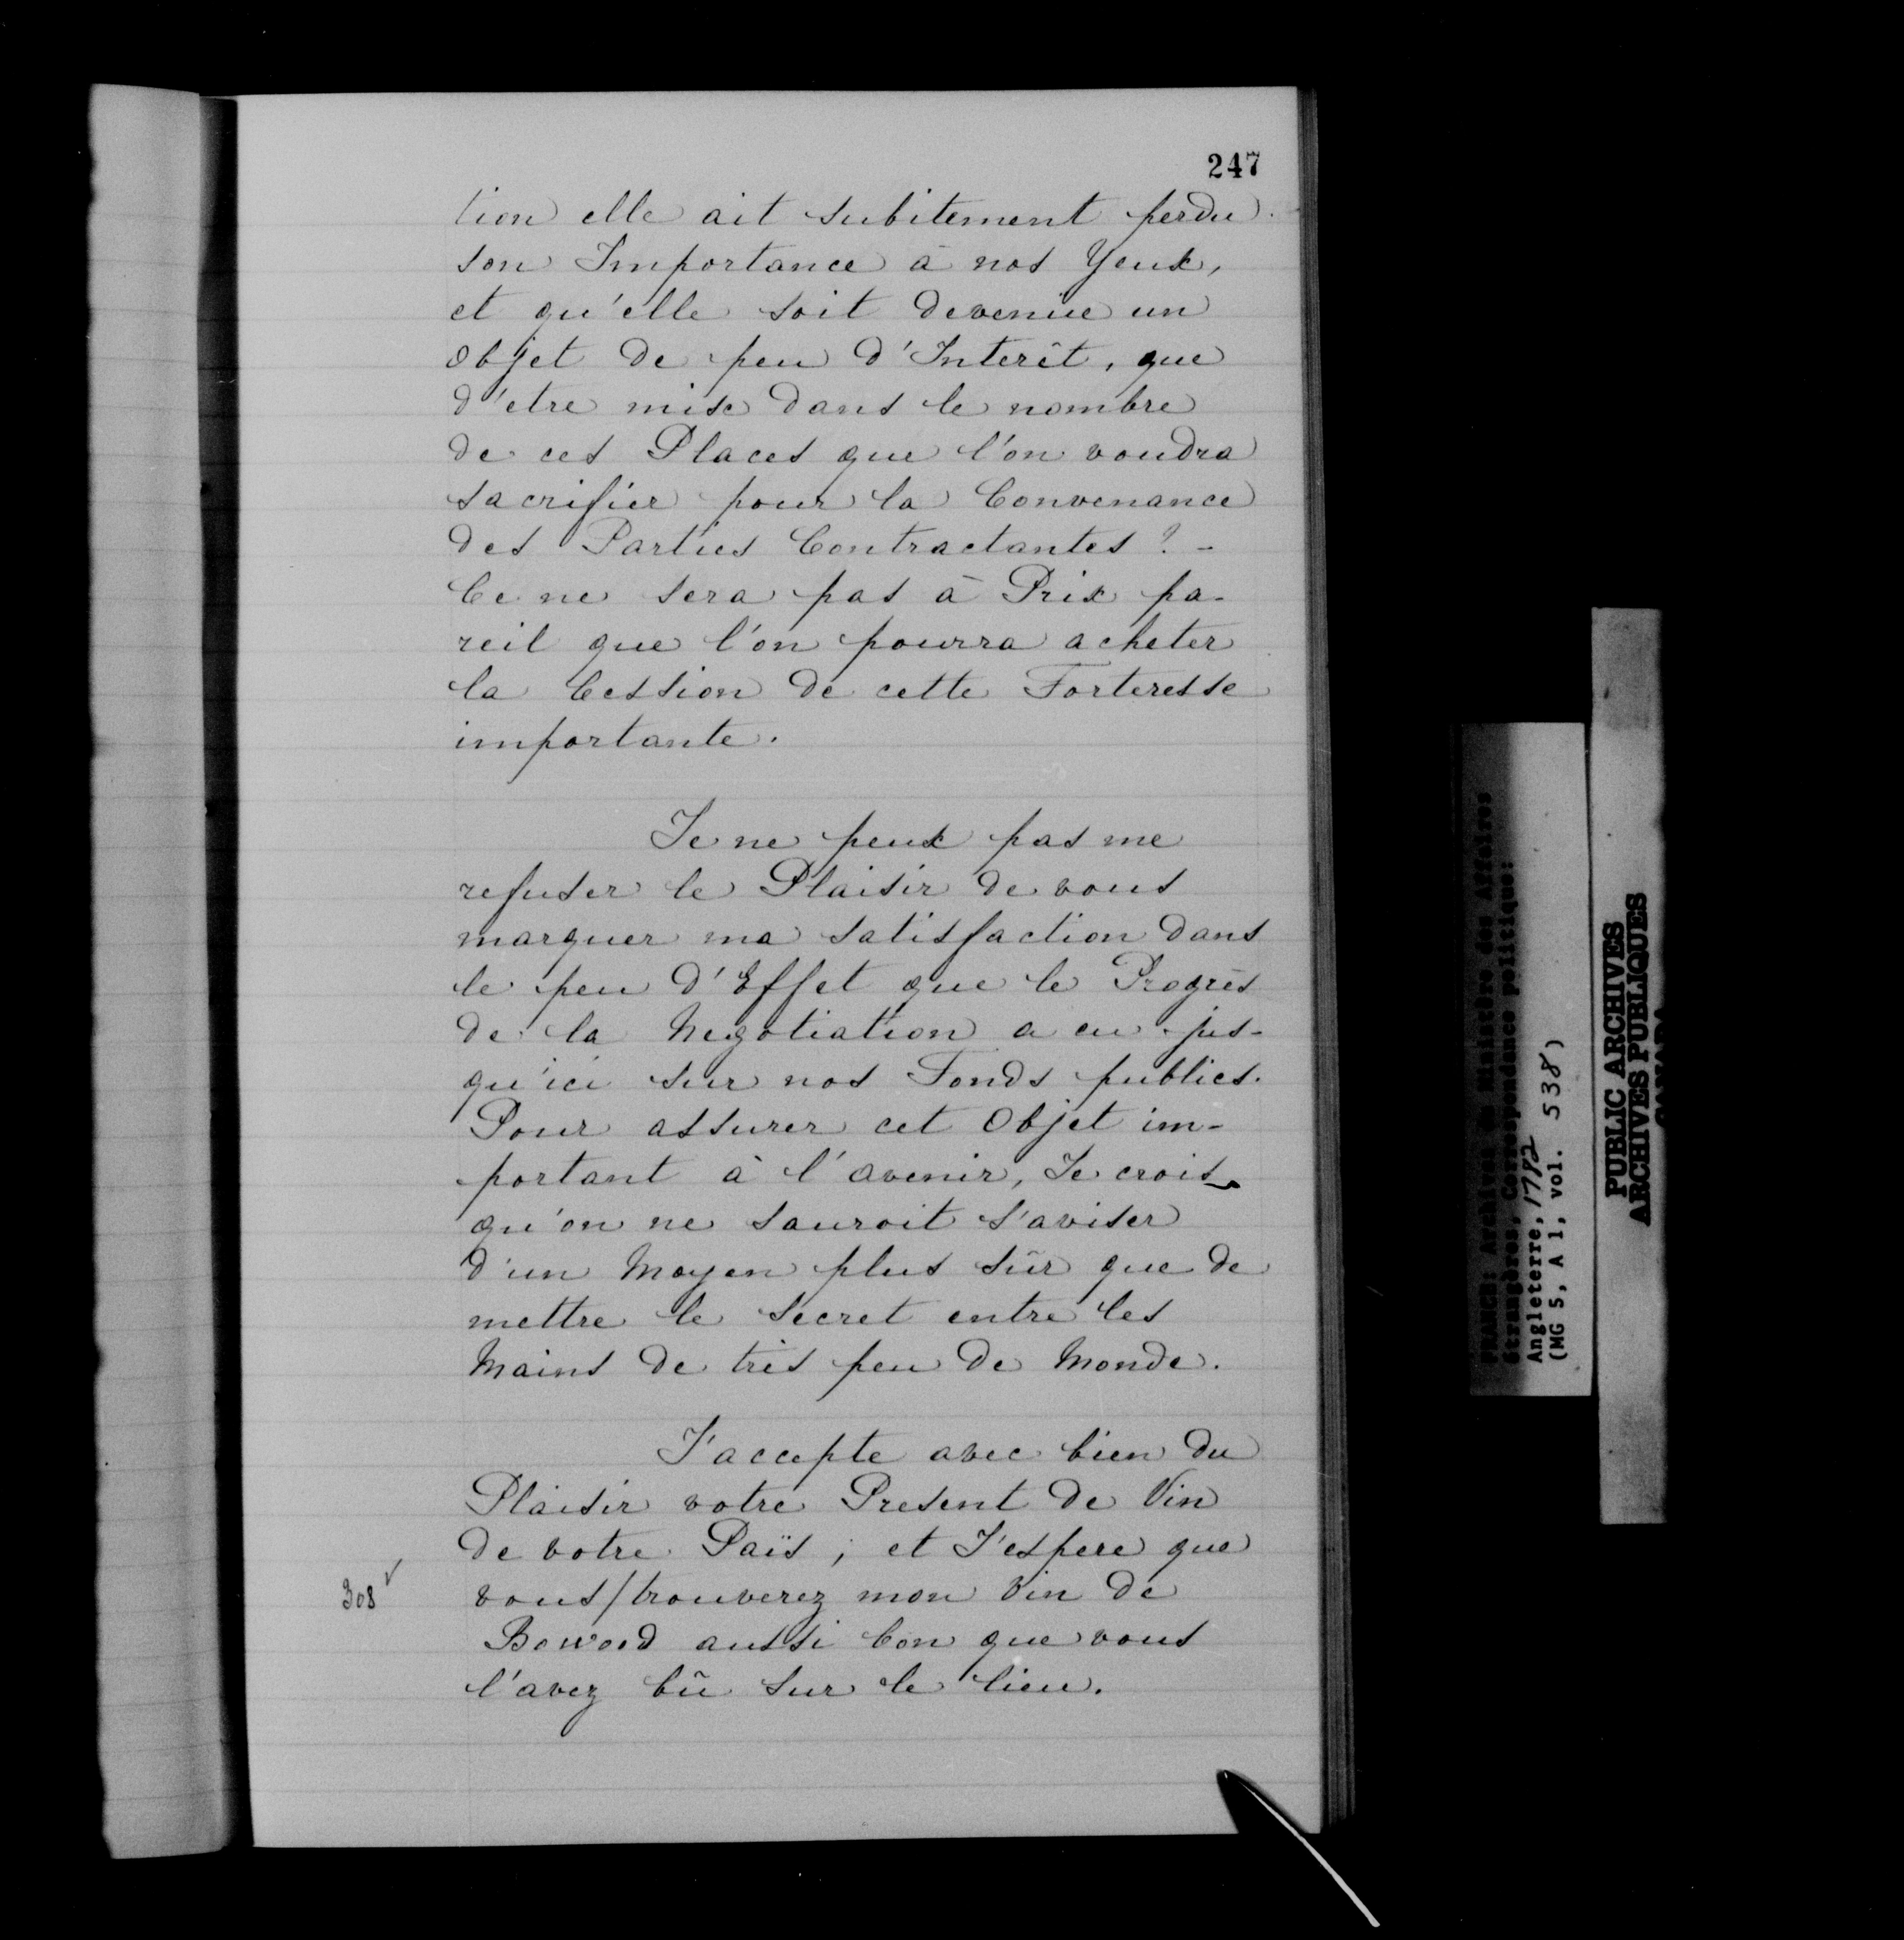 247
tion elle ait subitement perdu
son Importance à nos Yeux,
et qu'elle soit devenüe un
objet de peu d'Interêt, que
d'etre mise dans le nombre
de ces Places que l'on voudra
sacrifier pour la Convenance
des Parties Contractantes ? -
Ce ne sera pas à Prix pa-
reil que l'on pourra acheter
la Cession de cette Forteresse
importante.
Je ne peux pas me
refuser le Plaisir de vous
marquer ma satisfaction dans
le peu d'Effet que le Progrès
de la Negotiation a eu jus-
qu'ici sur nos Fonds publics.
Pour assurer cet Objet im-
portant à l'avenir, Je crois
qu'on ne sauroit s'aviser
d'un Moyen plus sûr que de
mettre le secret entre les
Mains de très peu de Monde.
J'accepte avec bien du
Plaisir votre Present de Vin
de votre Païs ; et J'espere que
308 v
vous/trouverez mon Vin de
Bowood aussi bon que vous
l'avez bû sur le lieu.
FRANCE: Archives du Ministère des Affaires
Étrangères, Correspondance politique:
Angleterre, 1782
(MG 5, A 1, vol. 538)
PUBLIC ARCHIVES
ARCHIVES PUBLIQUES
CANADA